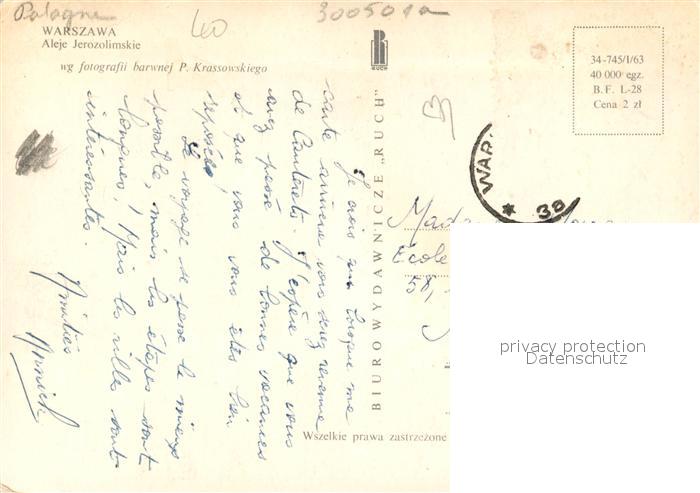 Pologne
40
300501a
WARSZAWA
Aleje Jerozolimskie
wg fotografii barwnej P. Krassowskiego
RUCH
34-745/I/63
40 000 egz.
B. F. L-28
Cena 2 zł
WAR.
* 30
BIURO WYDAWNICZE „RUCH"
Je crois que lorsque ma
carte arrivera vous serez revenue
de Cauterets. J'espère que vous
avez passé de bonnes vacances
et que vous vous êtes bien
reposée.
Le voyage se passe le mieux
possible, mais les étapes sont
longues! Mais les villes sont
intéressantes.
Amitiés
Annick
Mada
Ecole
58,
Wszelkie prawa zastrzeżone
privacy protection
Datenschutz